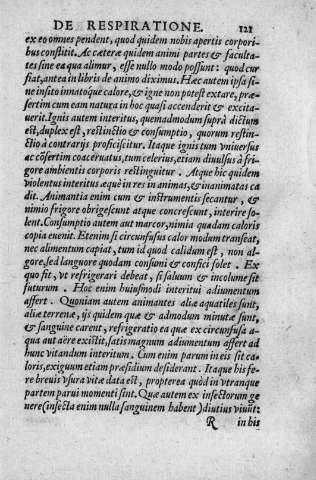 DE RESPIRATIONE. 121
ex eo omnes pendent, quod quidem nobis apertis corpori-
bus constitit. Ac cæteræ quidem animi partes & faculta-
tes sine ea qua alimur, esse nullo modo possunt: quod cur
fiat, antea in libris de animo diximus. Hæc autem ipsa si-
ne insito innatoque calore, & igne non potest extare, præ-
sertim cum eam natura in hoc quasi accenderit & excita-
uerit. Ignis autem interitus, quemadmodum suprà dictum
est, duplex est, restinctio & consumptio, quorum restin-
ctio à contrarijs proficiscitur. Itaque ignis tum vniuersus
ac cōfertim coaceruatus, tum celerius, etiam diuulsus à fri-
gore ambientis corporis restinguitur. Atque hic quidem
violentus interitus æquè in res in animas, & inanimatas ca
dit. Animantia enim cum & instrumentis secantur, &
nimio frigore obrigescunt atque concrescunt, interire so-
lent. Consumptio autem aut marcor, nimia quadam caloris
copia euenit. Etenim si circunfusus calor modum transeat,
nec alimentum capiat, tum id quod calidum est, non al-
gore, sed languore quodam consumi & confici solet. Ex
quo fit, vt refrigerari debeat, si saluum & incolume sit
futurum. Hoc enim huiusmodi interitui adiumentum
affert. Quoniam autem animantes aliæ aquatiles sunt,
aliæ terrenæ, ijs quidem quæ & admodum minutæ sunt,
& sanguine carent, refrigeratio ea quæ ex circunfusa a-
qua aut aëre existit, satis magnum adiumentum affert ad
hunc vitandum interitum. Cum enim parum in eis sit ca-
loris, exiguum etiam præsidium desiderant. Itaque his fe-
re breuis vsura vitæ data est, propterea quòd in vtranque
partem parui momenti sint. Quæ autem ex insectorum ge
nere (insecta enim nulla sanguinem habent) diutius viuūt:
R in his